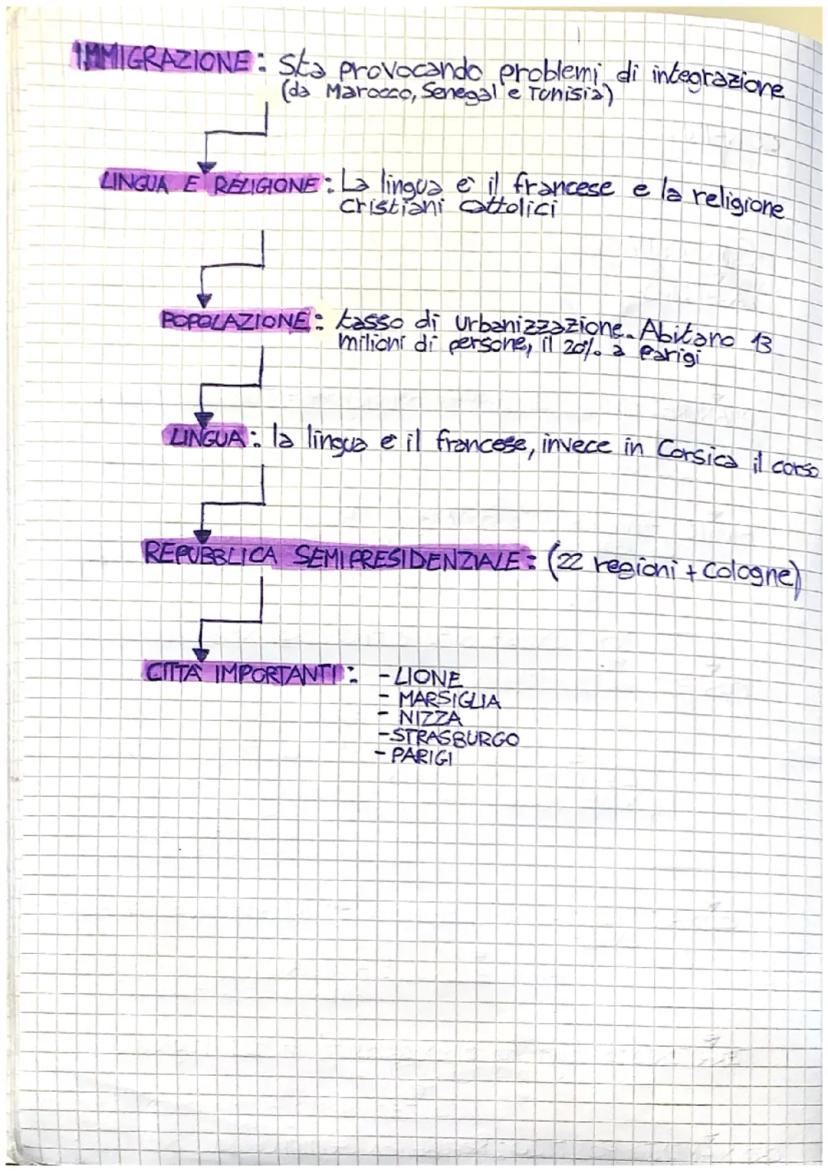 IMMIGRAZIONE: sta provocando problemi di integrazione
(da Marocco, Senegal e Tunisia)
LINGUA E RELIGIONE: La lingua è il francese e la religione
cristiani cattolici
POPOLAZIONE: tasso di urbanizzazione. Abitano 13
milioni di persone, il 20% a Parigi
LINGUA: la lingua è il francese, invece in Corsica il corso
REPUBBLICA SEMIPRESIDENZIALE: (22 regioni + cologne)
CITTÀ IMPORTANTI: - LIONE
- MARSIGLIA
- NIZZA
- STRASBURGO
- PARIGI